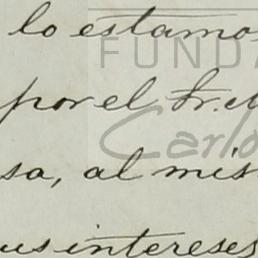 lo estamos
FUNDA
por el Sr. M
Carlo
sa, al mis
us intereses